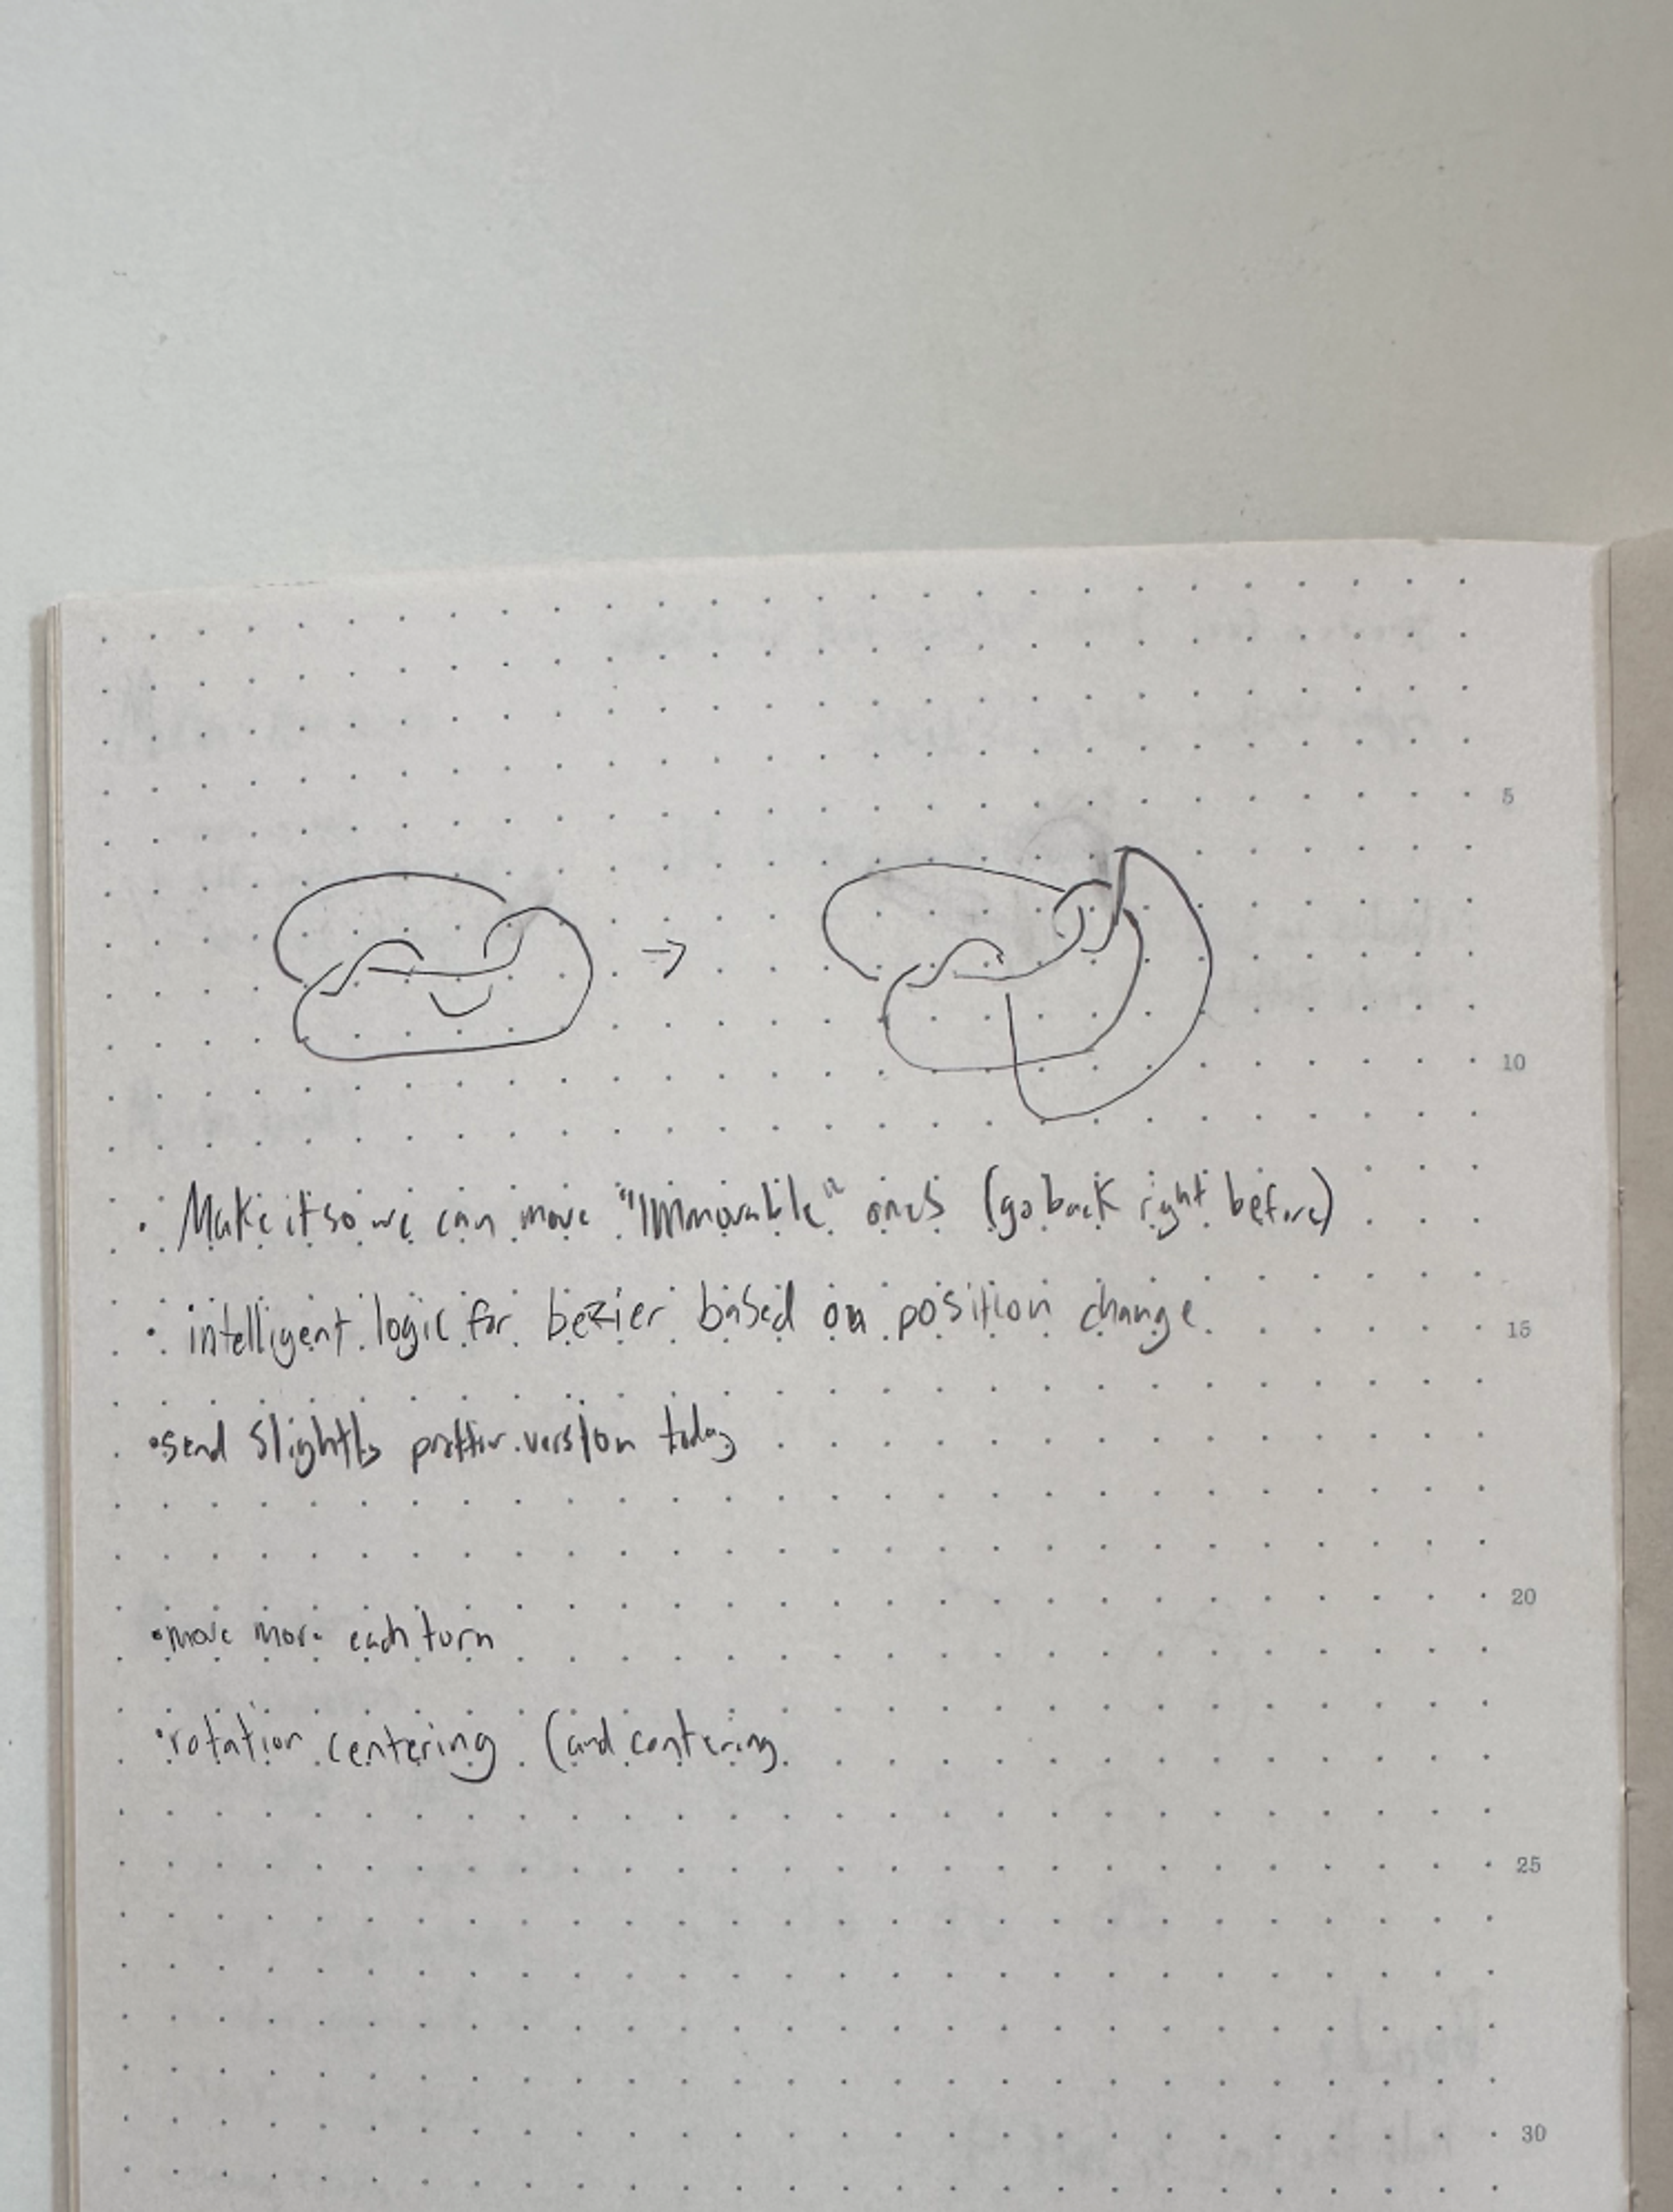 5
10
• Make it so we can move "immovable" ones (go back right before)
• intelligent logic for bezier based on position change
15
• send slightly prettier version today
20
• move more each turn
• rotation centering (and centering
25
30